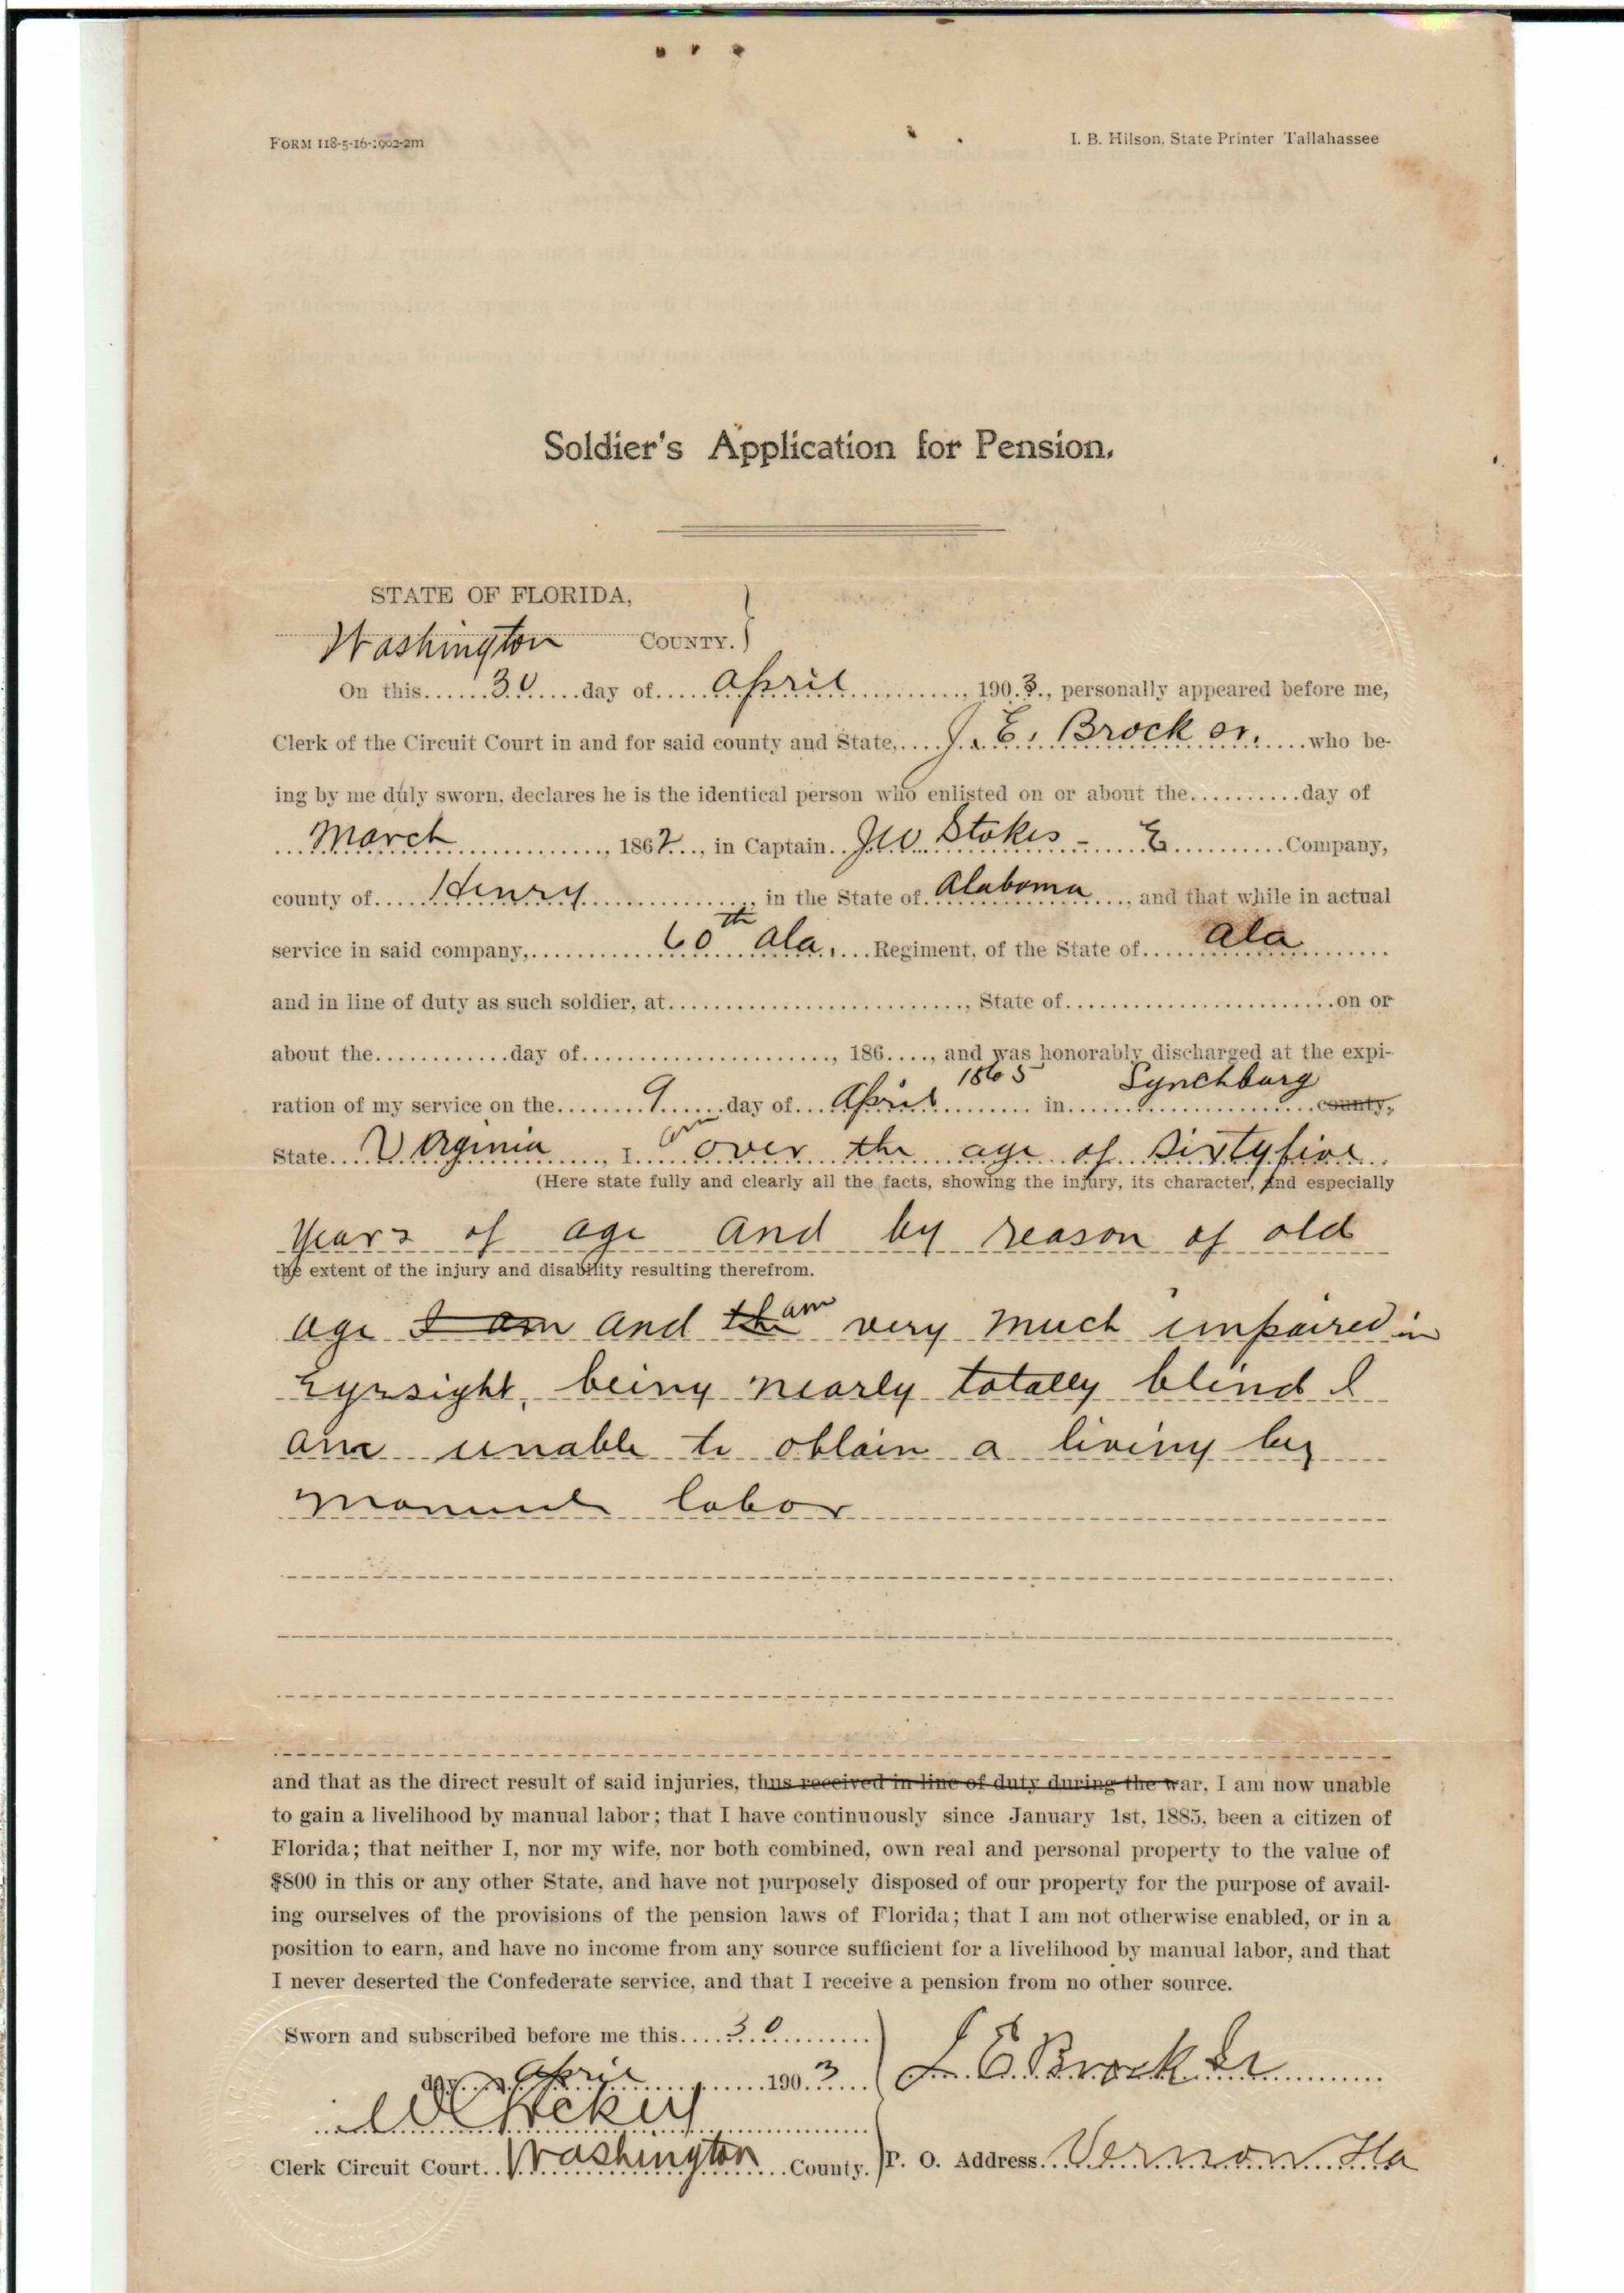 FORM 118-5-16-1902-2m
I. B. Hilson, State Printer Tallahassee
Soldier's Application for Pension.
STATE OF FLORIDA,
Washington COUNTY. }
On this 30 day of April, 1903, personally appeared before me,
Clerk of the Circuit Court in and for said county and State, J. E. Brock Sr. who be-
ing by me duly sworn, declares he is the identical person who enlisted on or about the day of
March, 1862, in Captain JW Stokes - E Company,
county of Henry, in the State of Alabama, and that while in actual
service in said company, 60th Ala, Regiment, of the State of Ala
and in line of duty as such soldier, at, State of on or
about the day of, 186, and was honorably discharged at the expi-
ration of my service on the 9 day of April 1865 in Lynchburg county,
State Virginia, I am over the age of sixtyfive
(Here state fully and clearly all the facts, showing the injury, its character, and especially
years of age and by reason of old
the extent of the injury and disability resulting therefrom.
age I am and the am very much impaired in
Eyesight, being nearly totally blind I
am unable to obtain a living by
manuel labor
and that as the direct result of said injuries, thus received in line of duty during the war, I am now unable
to gain a livelihood by manual labor; that I have continuously since January 1st, 1885, been a citizen of
Florida; that neither I, nor my wife, nor both combined, own real and personal property to the value of
$800 in this or any other State, and have not purposely disposed of our property for the purpose of avail-
ing ourselves of the provisions of the pension laws of Florida; that I am not otherwise enabled, or in a
position to earn, and have no income from any source sufficient for a livelihood by manual labor, and that
I never deserted the Confederate service, and that I receive a pension from no other source.
Sworn and subscribed before me this 30
day April 1903
J. E Brock Sr
Clerk Circuit Court Washington County.
P. O. Address Vernon Fla